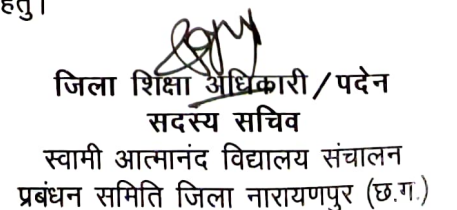 हेतु।
जिला शिक्षा अधिकारी / पदेन
सदस्य सचिव
स्वामी आत्मानंद विद्यालय संचालन
प्रबंधन समिति जिला नारायणपुर (छ.ग.)